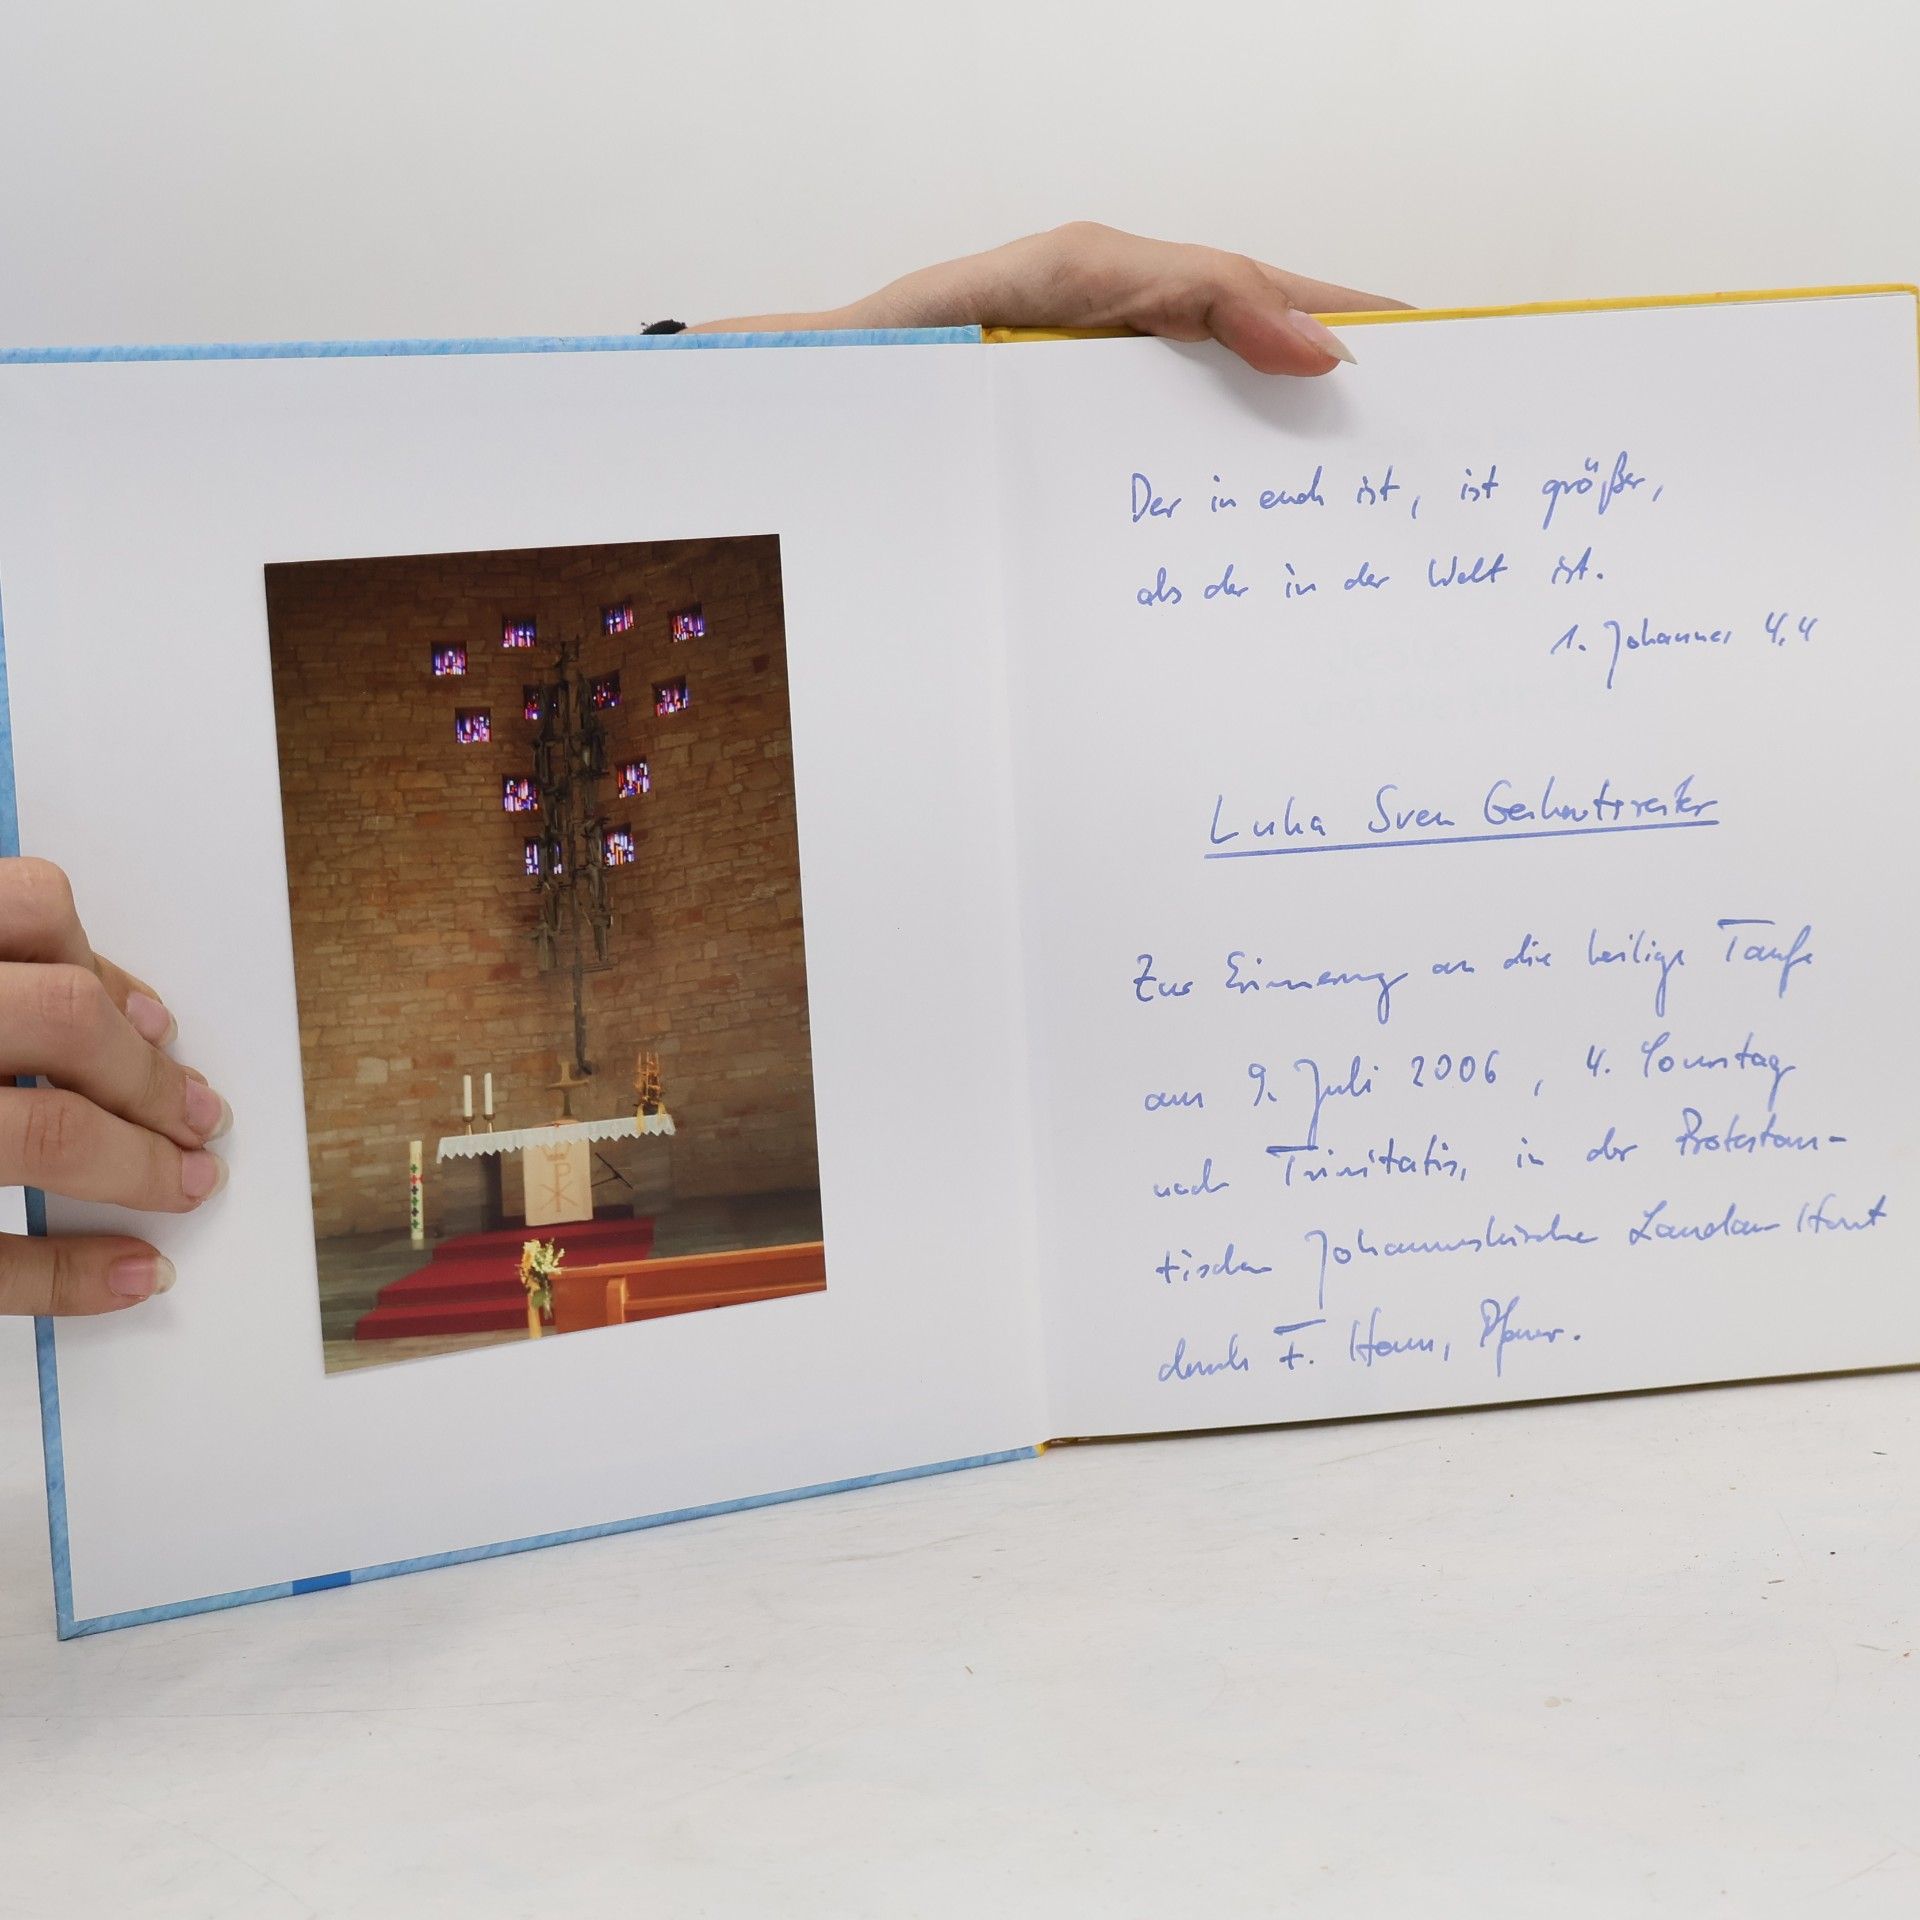 Der in euch ist, ist größer,
als der in der Welt ist.
1. Johannes 4,4
Luka Sven
Zur Erinnerung an die heilige Taufe
am 9. Juli 2006, 4. Sonntag
nach Trinitatis, in der Protestan-
tischen Johanneskirche Landau Horst
durch F. Pfarrer.